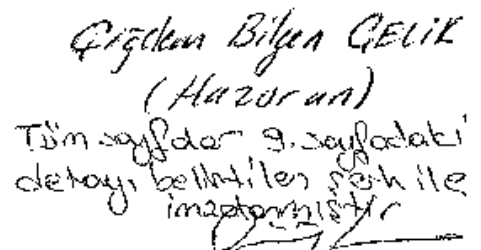 Çiğdem Bilgen ÇELİK
(Hazurun)
Tüm sayfalar 9. sayfadaki
detayı belirtilen şerh ile
imzalanmıştır